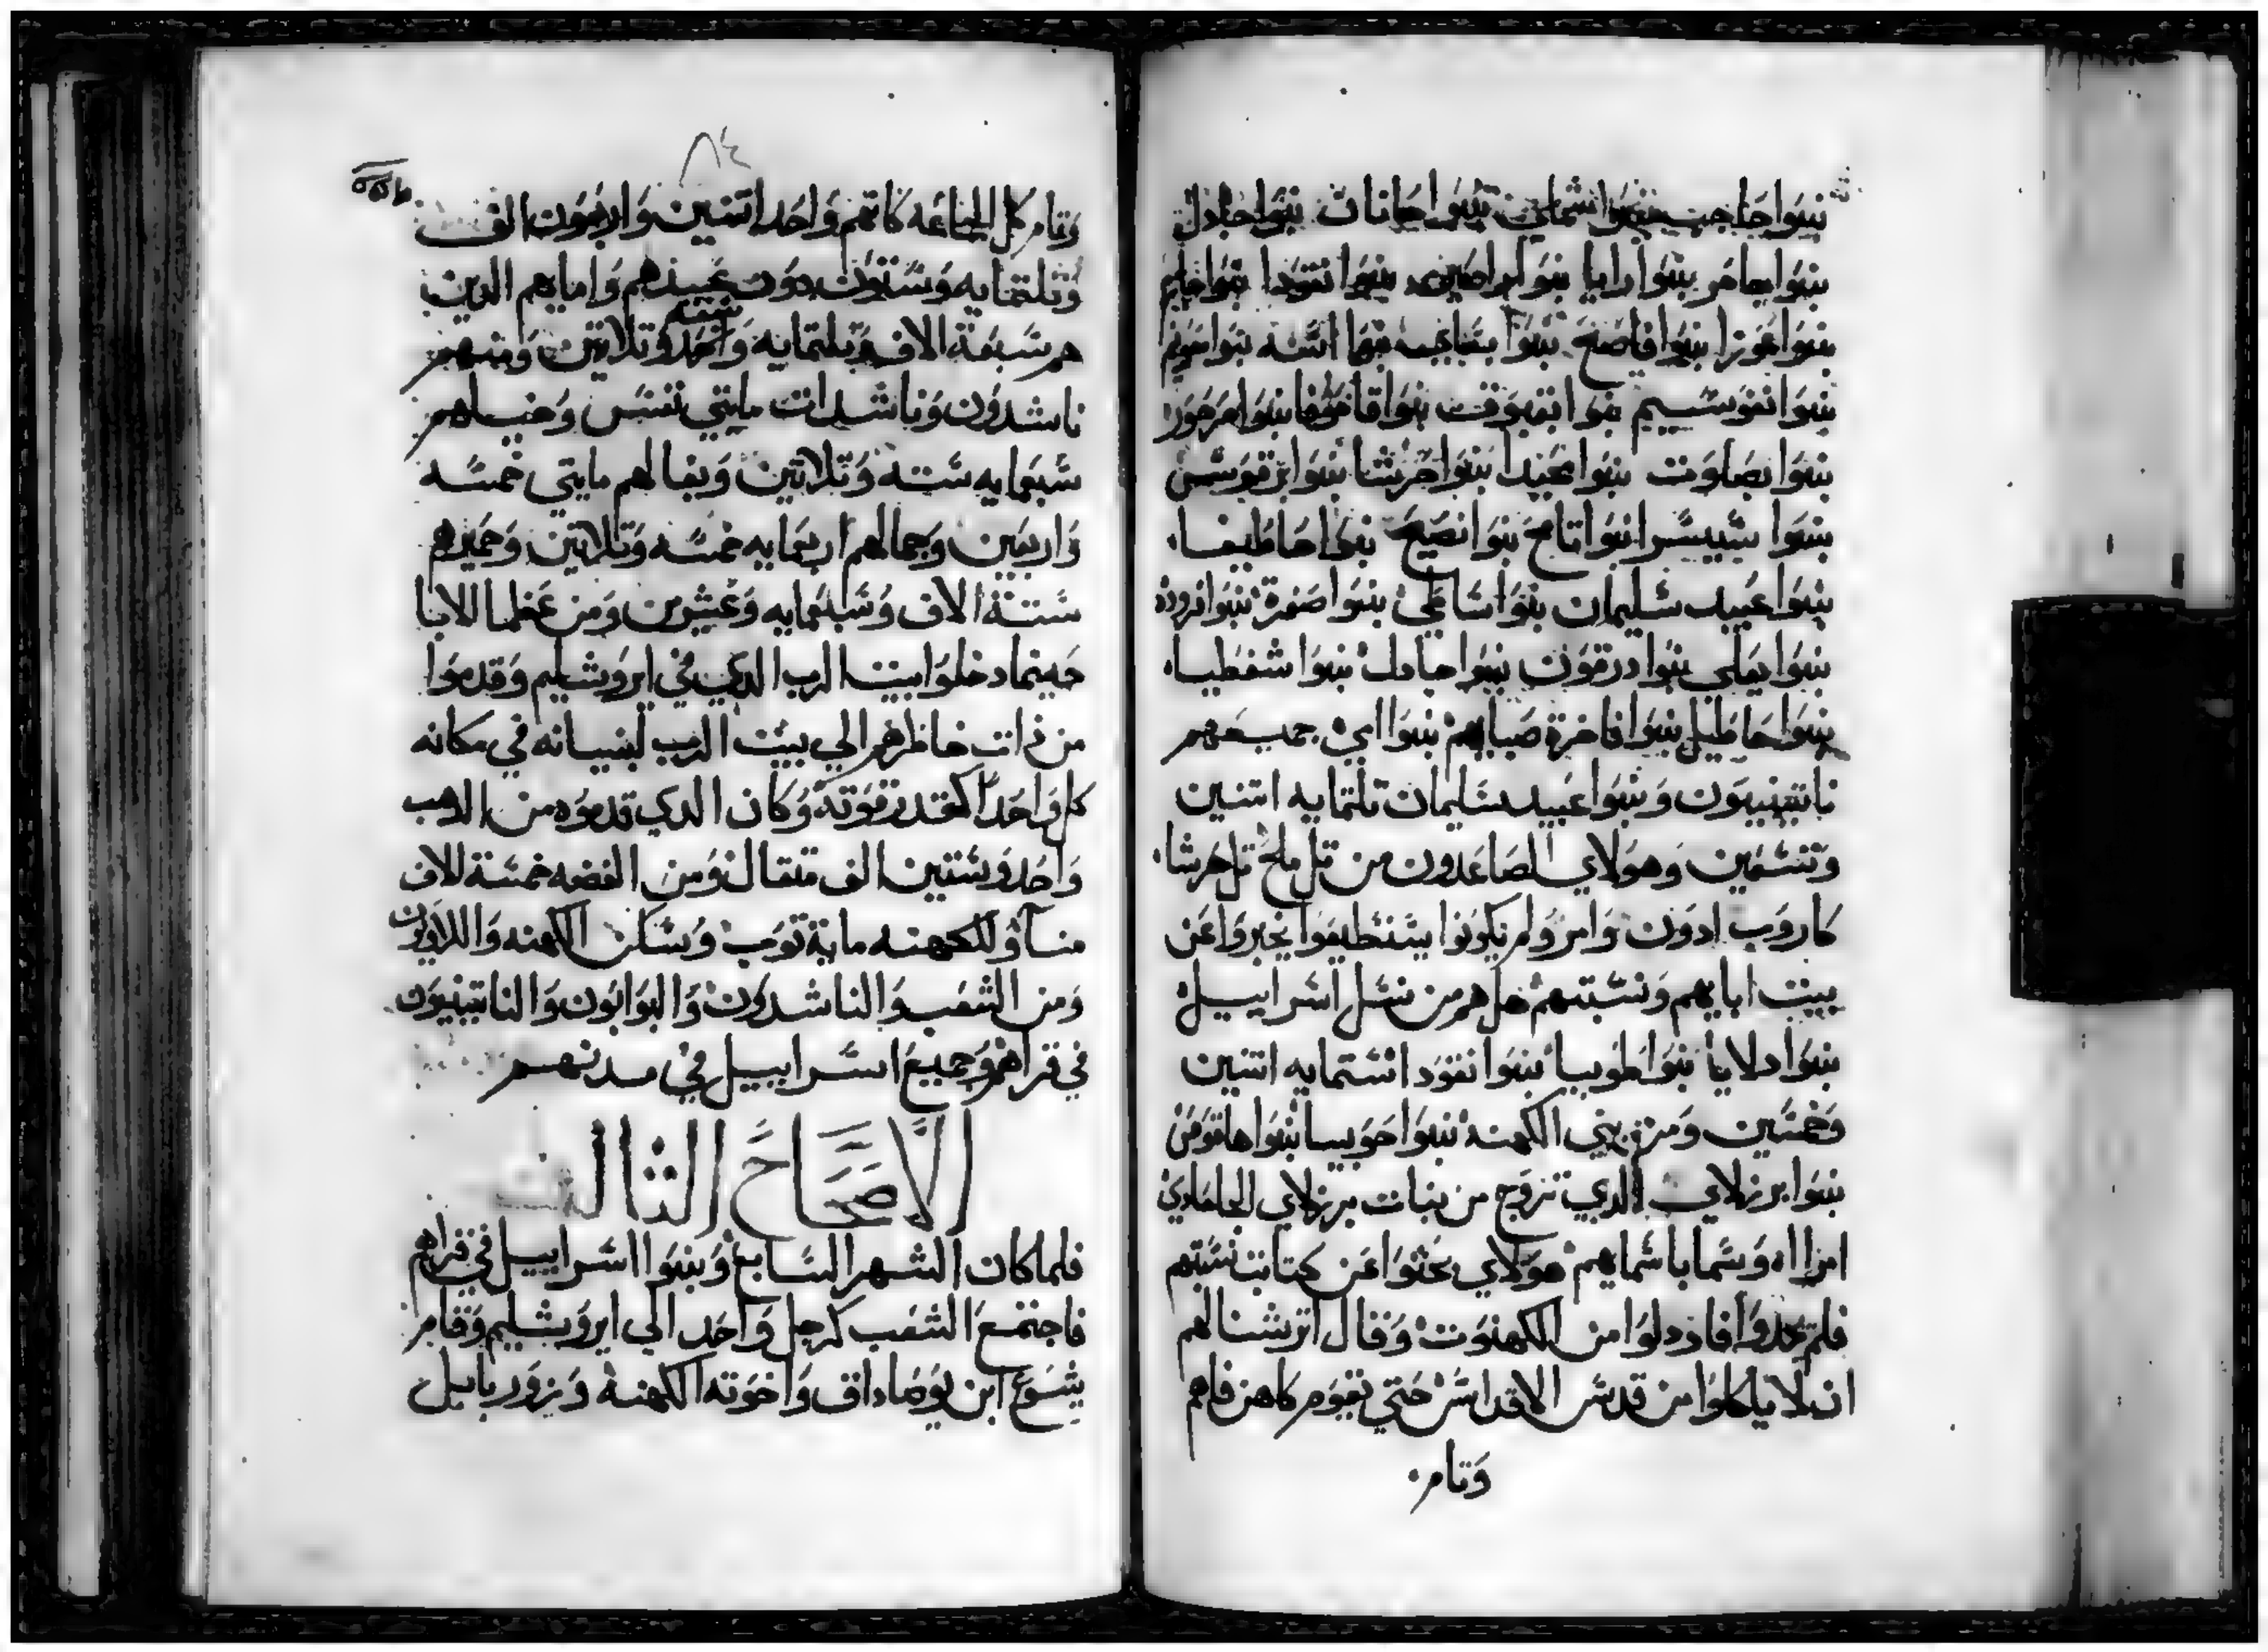 بنوا حاجب بنوا شملي بنوا حانان بنوا جادل
بنوا حاحر بنوا رايا بنوا راصين بنوا نقودا بنوا
بنوا عوزا بنوا فاصح بنوا بنوا اسنه بنوا
بنوا نفوسيم بنوا بقبوق بنوا قاحوفا بنوا حرحور
بنوا بصلوت بنوا محيدا بنوا حرشا بنوا برقوس
بنوا سيسرا بنوا تامح بنوا نصيح بنوا حاطيفا
بنوا عبيد سليمان بنوا ساطي بنوا صفرة بنوا فرودا
بنوا يعلي بنوا درقون بنوا جادل بنوا شفطيا
بنوا حاطيل بنوا فاخرة صباييم بنوا امي جميعهم
ناتينيون وبنوا عبيد سليمان تلتمايه اتنين
وتسعين وهولاي الصاعدون من تل ملح تل حرشا
كاروب ادون وامر ولم يكونوا يستطيعوا يخبروا عن
بيت ابايهم ونسبتهم هل هم من نسل اسراييل
بنوا دلايا بنوا طوبيا بنوا نقودا ستمايه اتنين
وخمسين ومن بني الكهنة بنوا حوبيا بنوا هاقوص
بنوا برزلاي الدي تزوج من بنات برزلاي الجلعادي
امراه وسما باسمايهم هولاي بحثوا عن كتابت نسبتهم
فلم يجدوا فاذدلوا من الكهنوت وقال اترشتا لهم
ان لا ياكلوا من قدس الاقداس حتي يقوم كاهن فاهم
وتام
٨٤
وتام كل الجماعه كانهم واحد اتنين واربعون الف
وتلتمايه وستون دون عبيدهم وامايهم الدين
هم سبعة الاف وتلتمايه سبعه وتلاتين ومنهم
ناشدون وناشدات مايتي نفس وخيلهم
سبعمايه سته وتلاتين وبغالهم مايتي خمسه
واربعين وجمالهم اربعمايه خمسه وتلاتين وحميرهم
ستة الاف وسبعمايه وعشرين ومن عظما الابا
حينما دخلوا بيت الرب الدي في ايروشليم وقدموا
من ذات خاطرهم الي بيت الرب لبنيانه في مكانه
كل واحدا كقدر قوته وكان الدي قدموه من الدهب
واحد وستين الف متقال ومن الفضه خمسة الاف
منا وللكهنه ماية توب وسكن الكهنه واللاويون
ومن الشعب والناشدون والبوابون والناتينيون
في قراهم وجميع اسراييل في مدنهم
الاصحاح الثالث
فلما كان الشهر السابع وبنوا اسراييل في قراهم
فاجتمع الشعب كرجل واحد الي ايروشليم وقام
يشوع ابن يوصاداق واخوته الكهنة وزور بابل